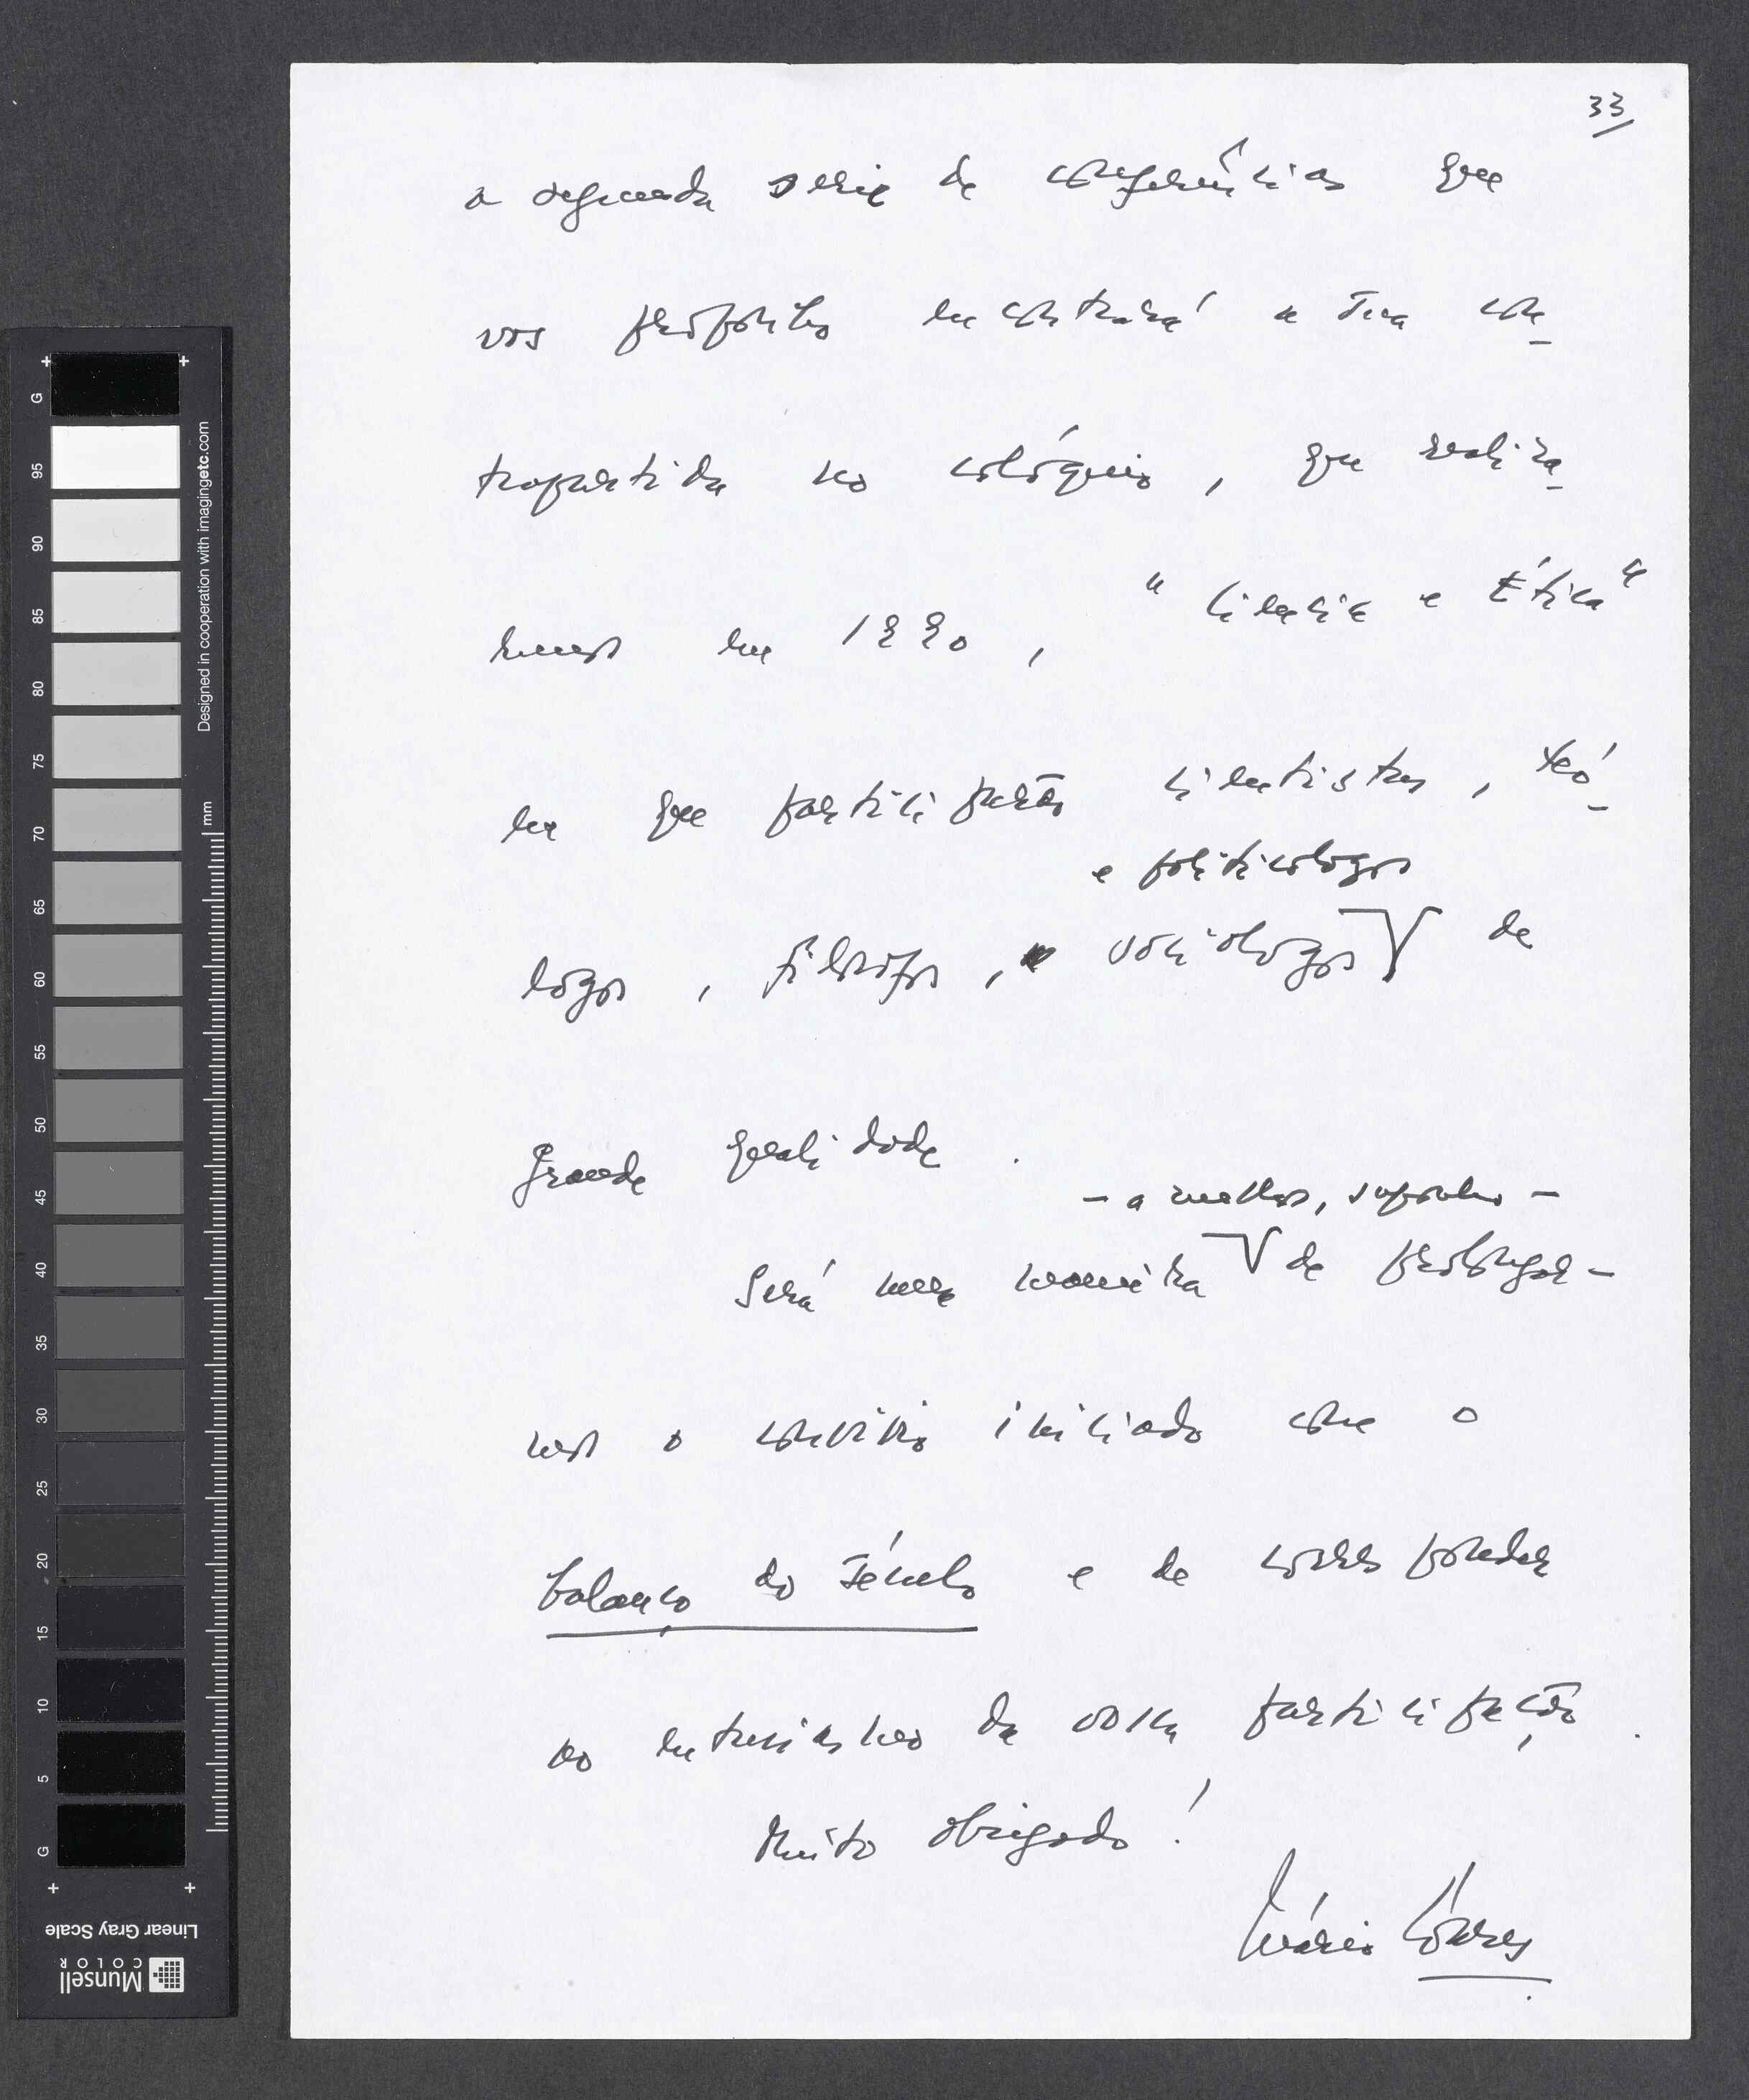 33
a segunda série de conferências que
vos proponho encontrará a sua con-
trapartida no colóquio, que realiza-
remos em 1990, "Ciência e Ética"
em que participarão cientistas, teó-
logos, filósofos, sociólogos e politicologos de
grande qualidade.
Será uma maneira - a melhor, suponho - de prolongar-
mos o convívio iniciado com o
balanço do Século e de corresponder
ao entusiasmo da vossa participação.
Muito obrigado!
Mário Soares
G
95
90
85
80
75
70
65
60
55
50
45
40
35
30
25
20
15
10
5
G
Designed in cooperation with imagingetc.com
mm
Linear Gray Scale
Munsell
COLOR